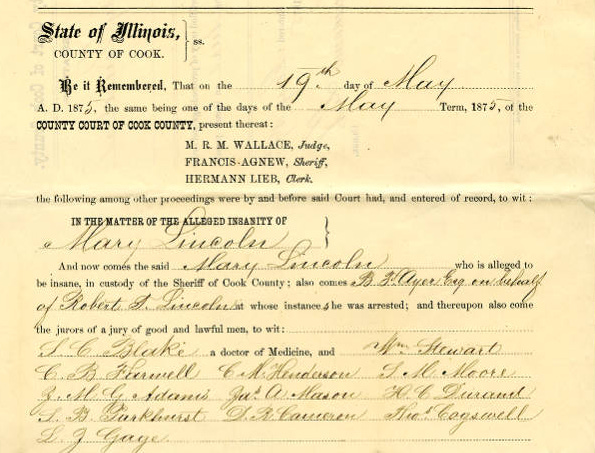 State of Illinois,
COUNTY OF COOK. } ss.
Be it Remembered, That on the 19th day of May
A. D. 1875, the same being one of the days of the May Term, 1875, of the
COUNTY COURT OF COOK COUNTY, present thereat:
M. R. M. WALLACE, Judge,
FRANCIS-AGNEW, Sheriff,
HERMANN LIEB, Clerk.
the following among other proceedings were by and before said Court had, and entered of record, to wit:
IN THE MATTER OF THE ALLEGED INSANITY OF }
Mary Lincoln
And now comes the said Mary Lincoln who is alleged to
be insane, in custody of the Sheriff of Cook County; also comes B. F. Ayer Esq. on behalf
of Robert T. Lincoln at whose instance she was arrested; and thereupon also come
the jurors of a jury of good and lawful men, to wit:
S. C. Blake a doctor of Medicine, and Wm Stewart
C. B. Farwell C. M. Henderson S. M. Moore
J. M. G. Adams Jas. A. Mason H. C. Durand
S. B. Parkhurst D. R. Cameron Thos. Cogswell
L. J. Gage.